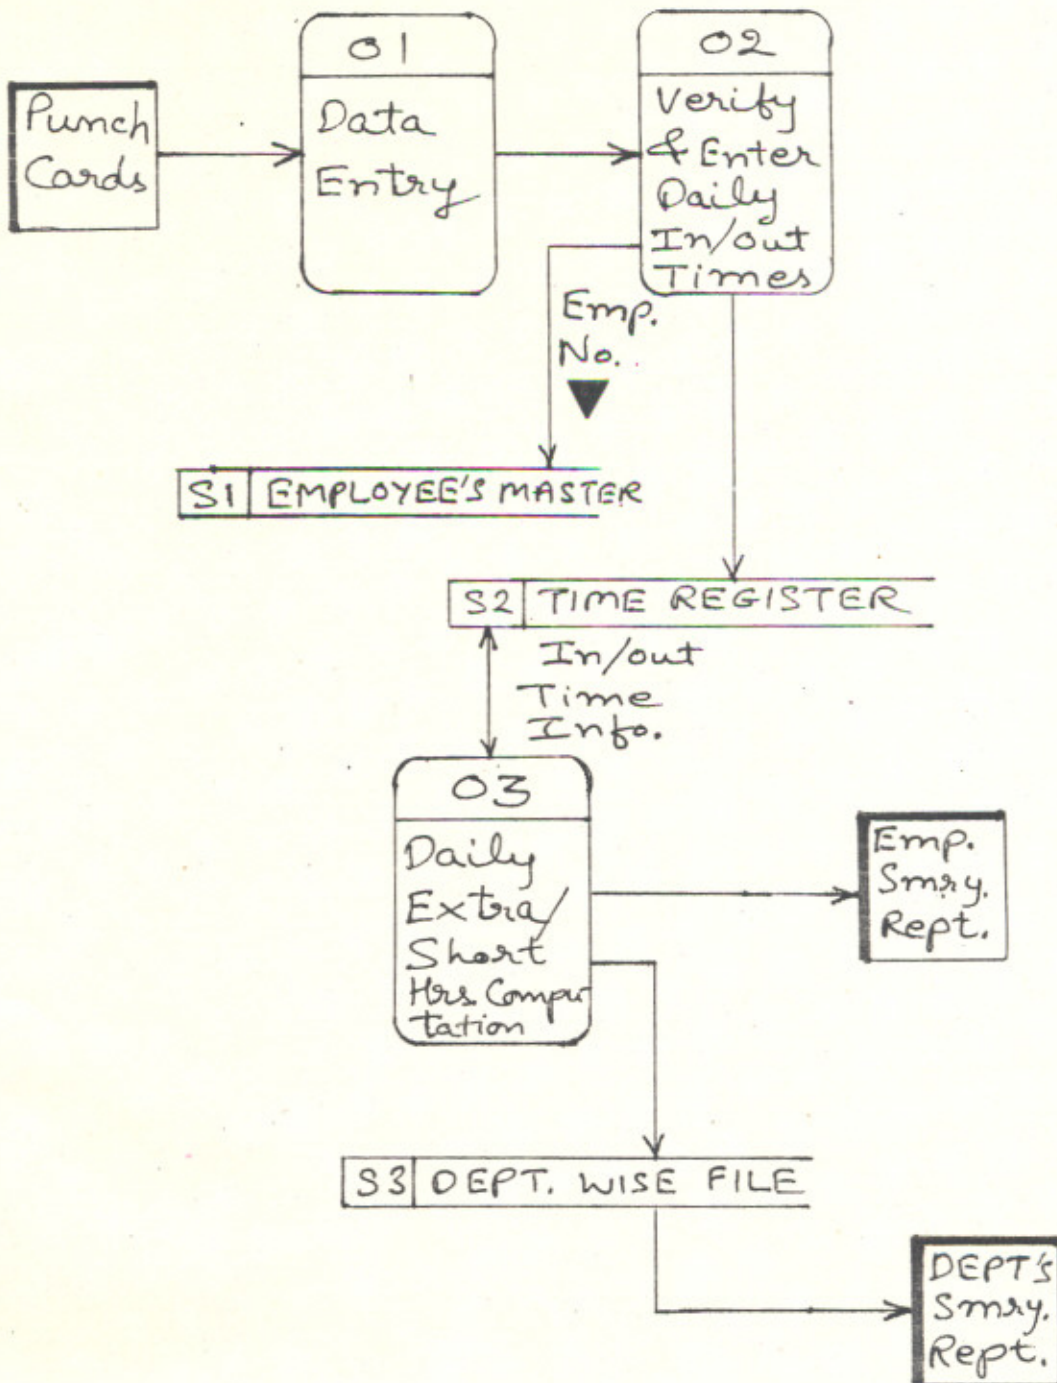 Punch
Cards
01
Data
Entry
02
Verify
& Enter
Daily
In/out
Times
Emp.
No.
S1 EMPLOYEE'S MASTER
S2 TIME REGISTER
In/out
Time
Info.
03
Daily
Extra/
Short
Hrs. Compu-
tation
Emp.
Smry.
Rept.
S3 DEPT. WISE FILE
DEPT'S
Smry.
Rept.